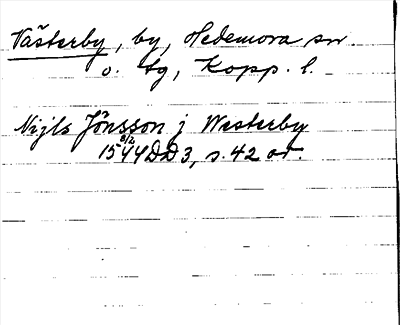 Västerby, by, Hedemora sn
o. tg, Kopp. l.
Nijls Jönsson j Westerby
1544 8/2 DD 3, s. 42 or.